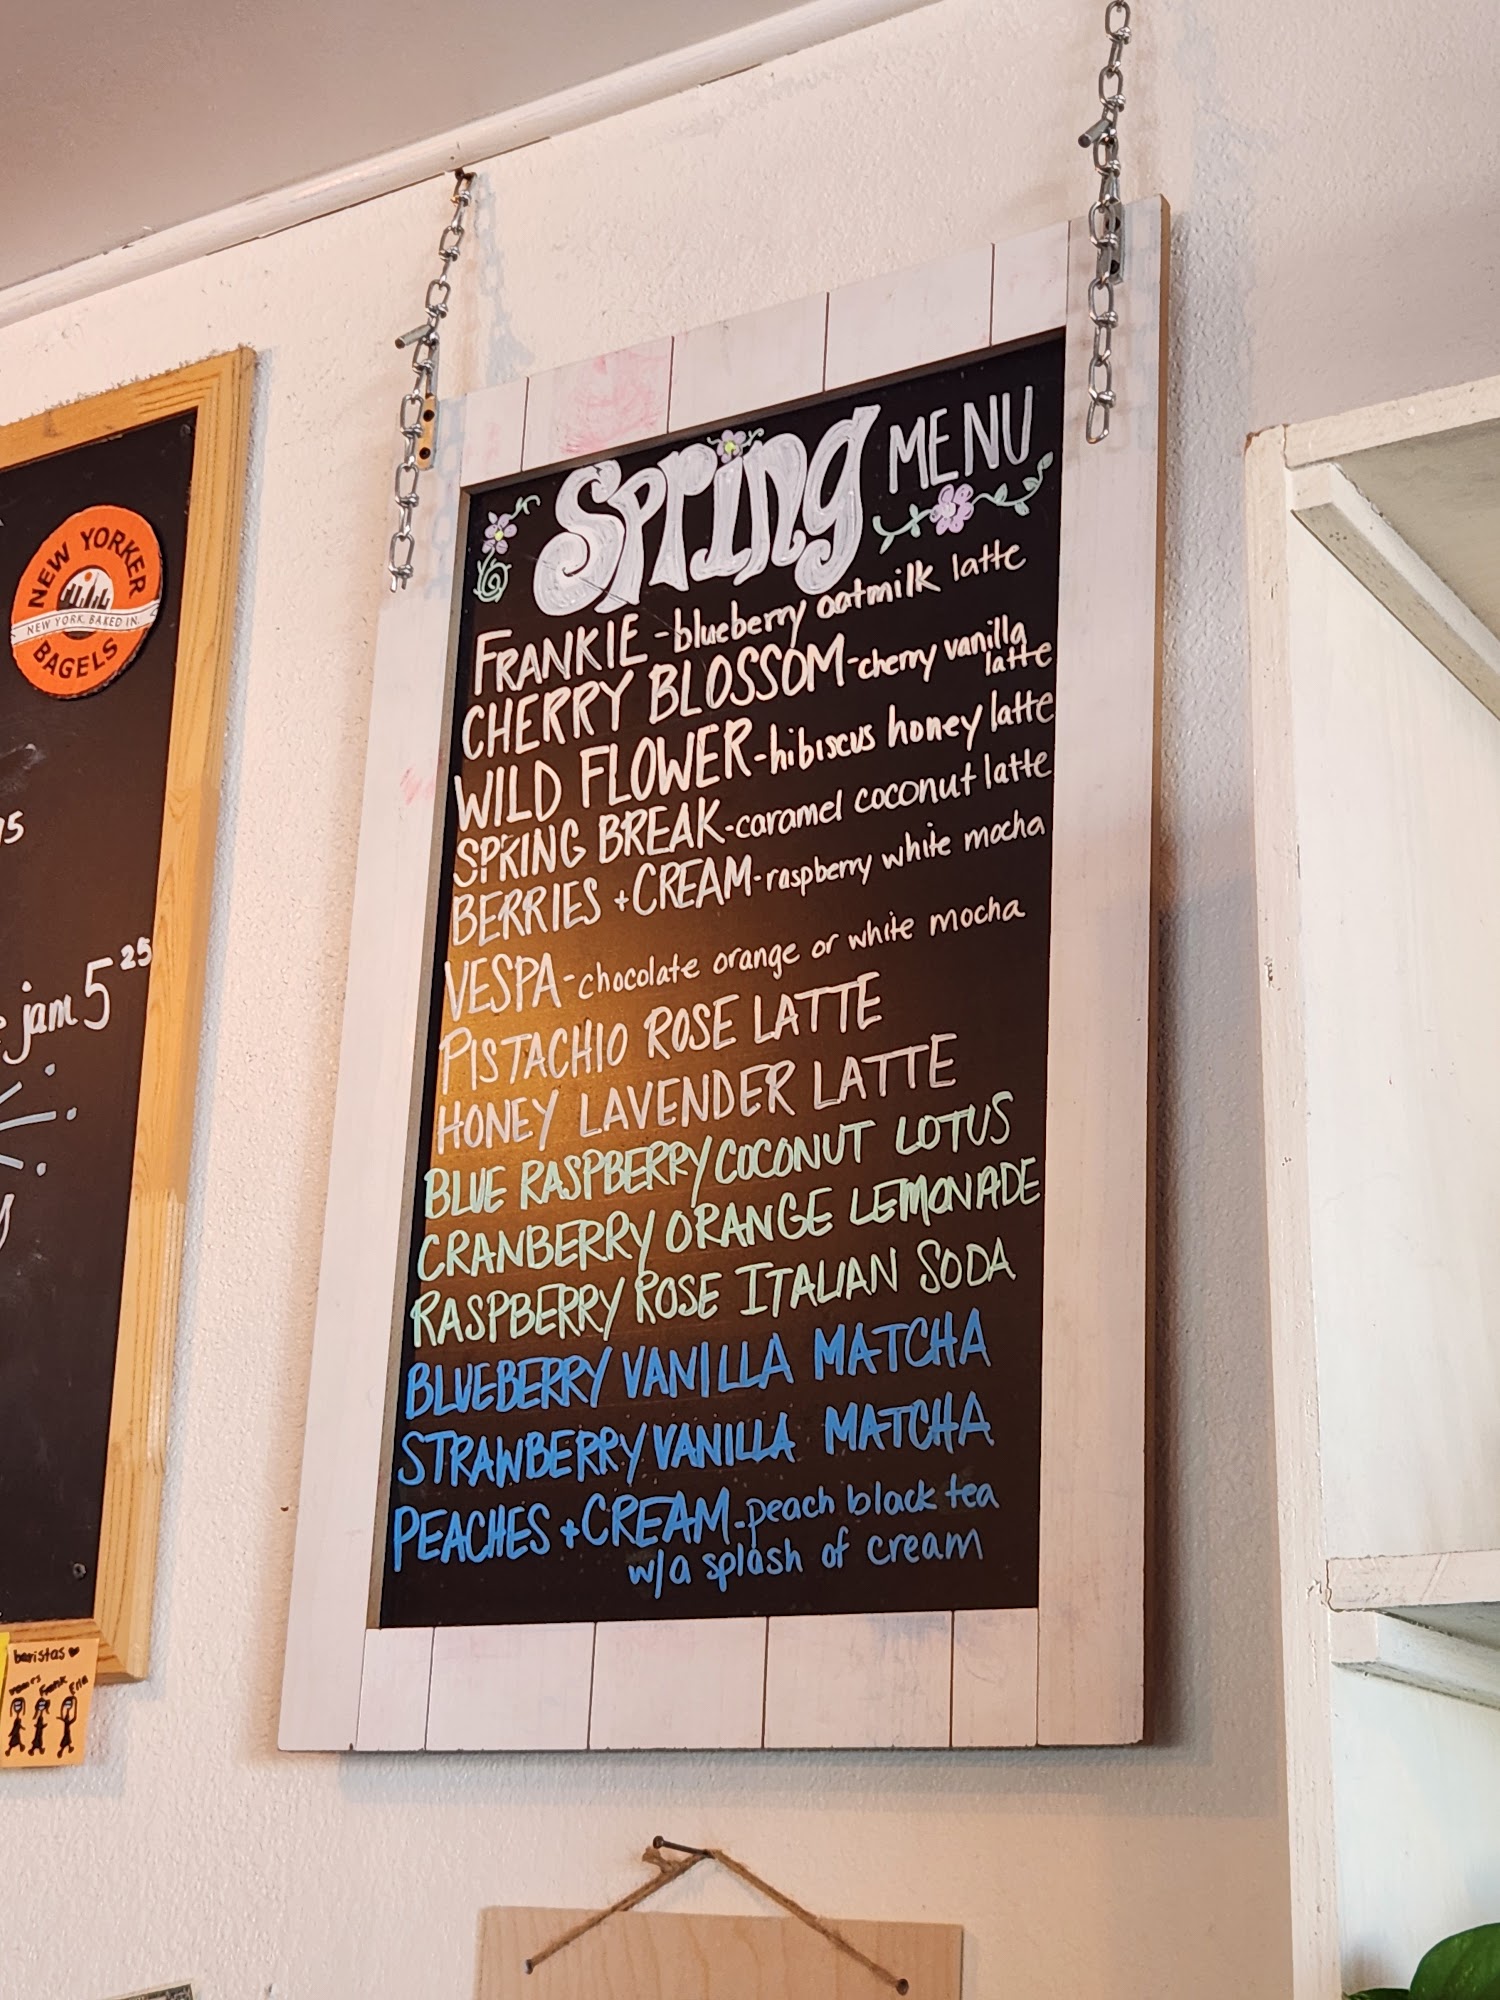 NEW YORKER
NEW YORK. BAKED IN.
BAGELS
jam 5 25
baristas
Frank
Spring MENU
FRANKIE - blueberry oatmilk latte
CHERRY BLOSSOM - cherry vanilla
latte
WILD FLOWER - hibiscus honey latte
SPRING BREAK - caramel coconut latte
BERRIES + CREAM - raspberry white mocha
VESPA - chocolate orange or white mocha
PISTACHIO ROSE LATTE
HONEY LAVENDER LATTE
BLUE RASPBERRY COCONUT LOTUS
CRANBERRY ORANGE LEMONADE
RASPBERRY ROSE ITALIAN SODA
BLUEBERRY VANILLA MATCHA
STRAWBERRY VANILLA MATCHA
PEACHES + CREAM - peach black tea
w/a splash of cream